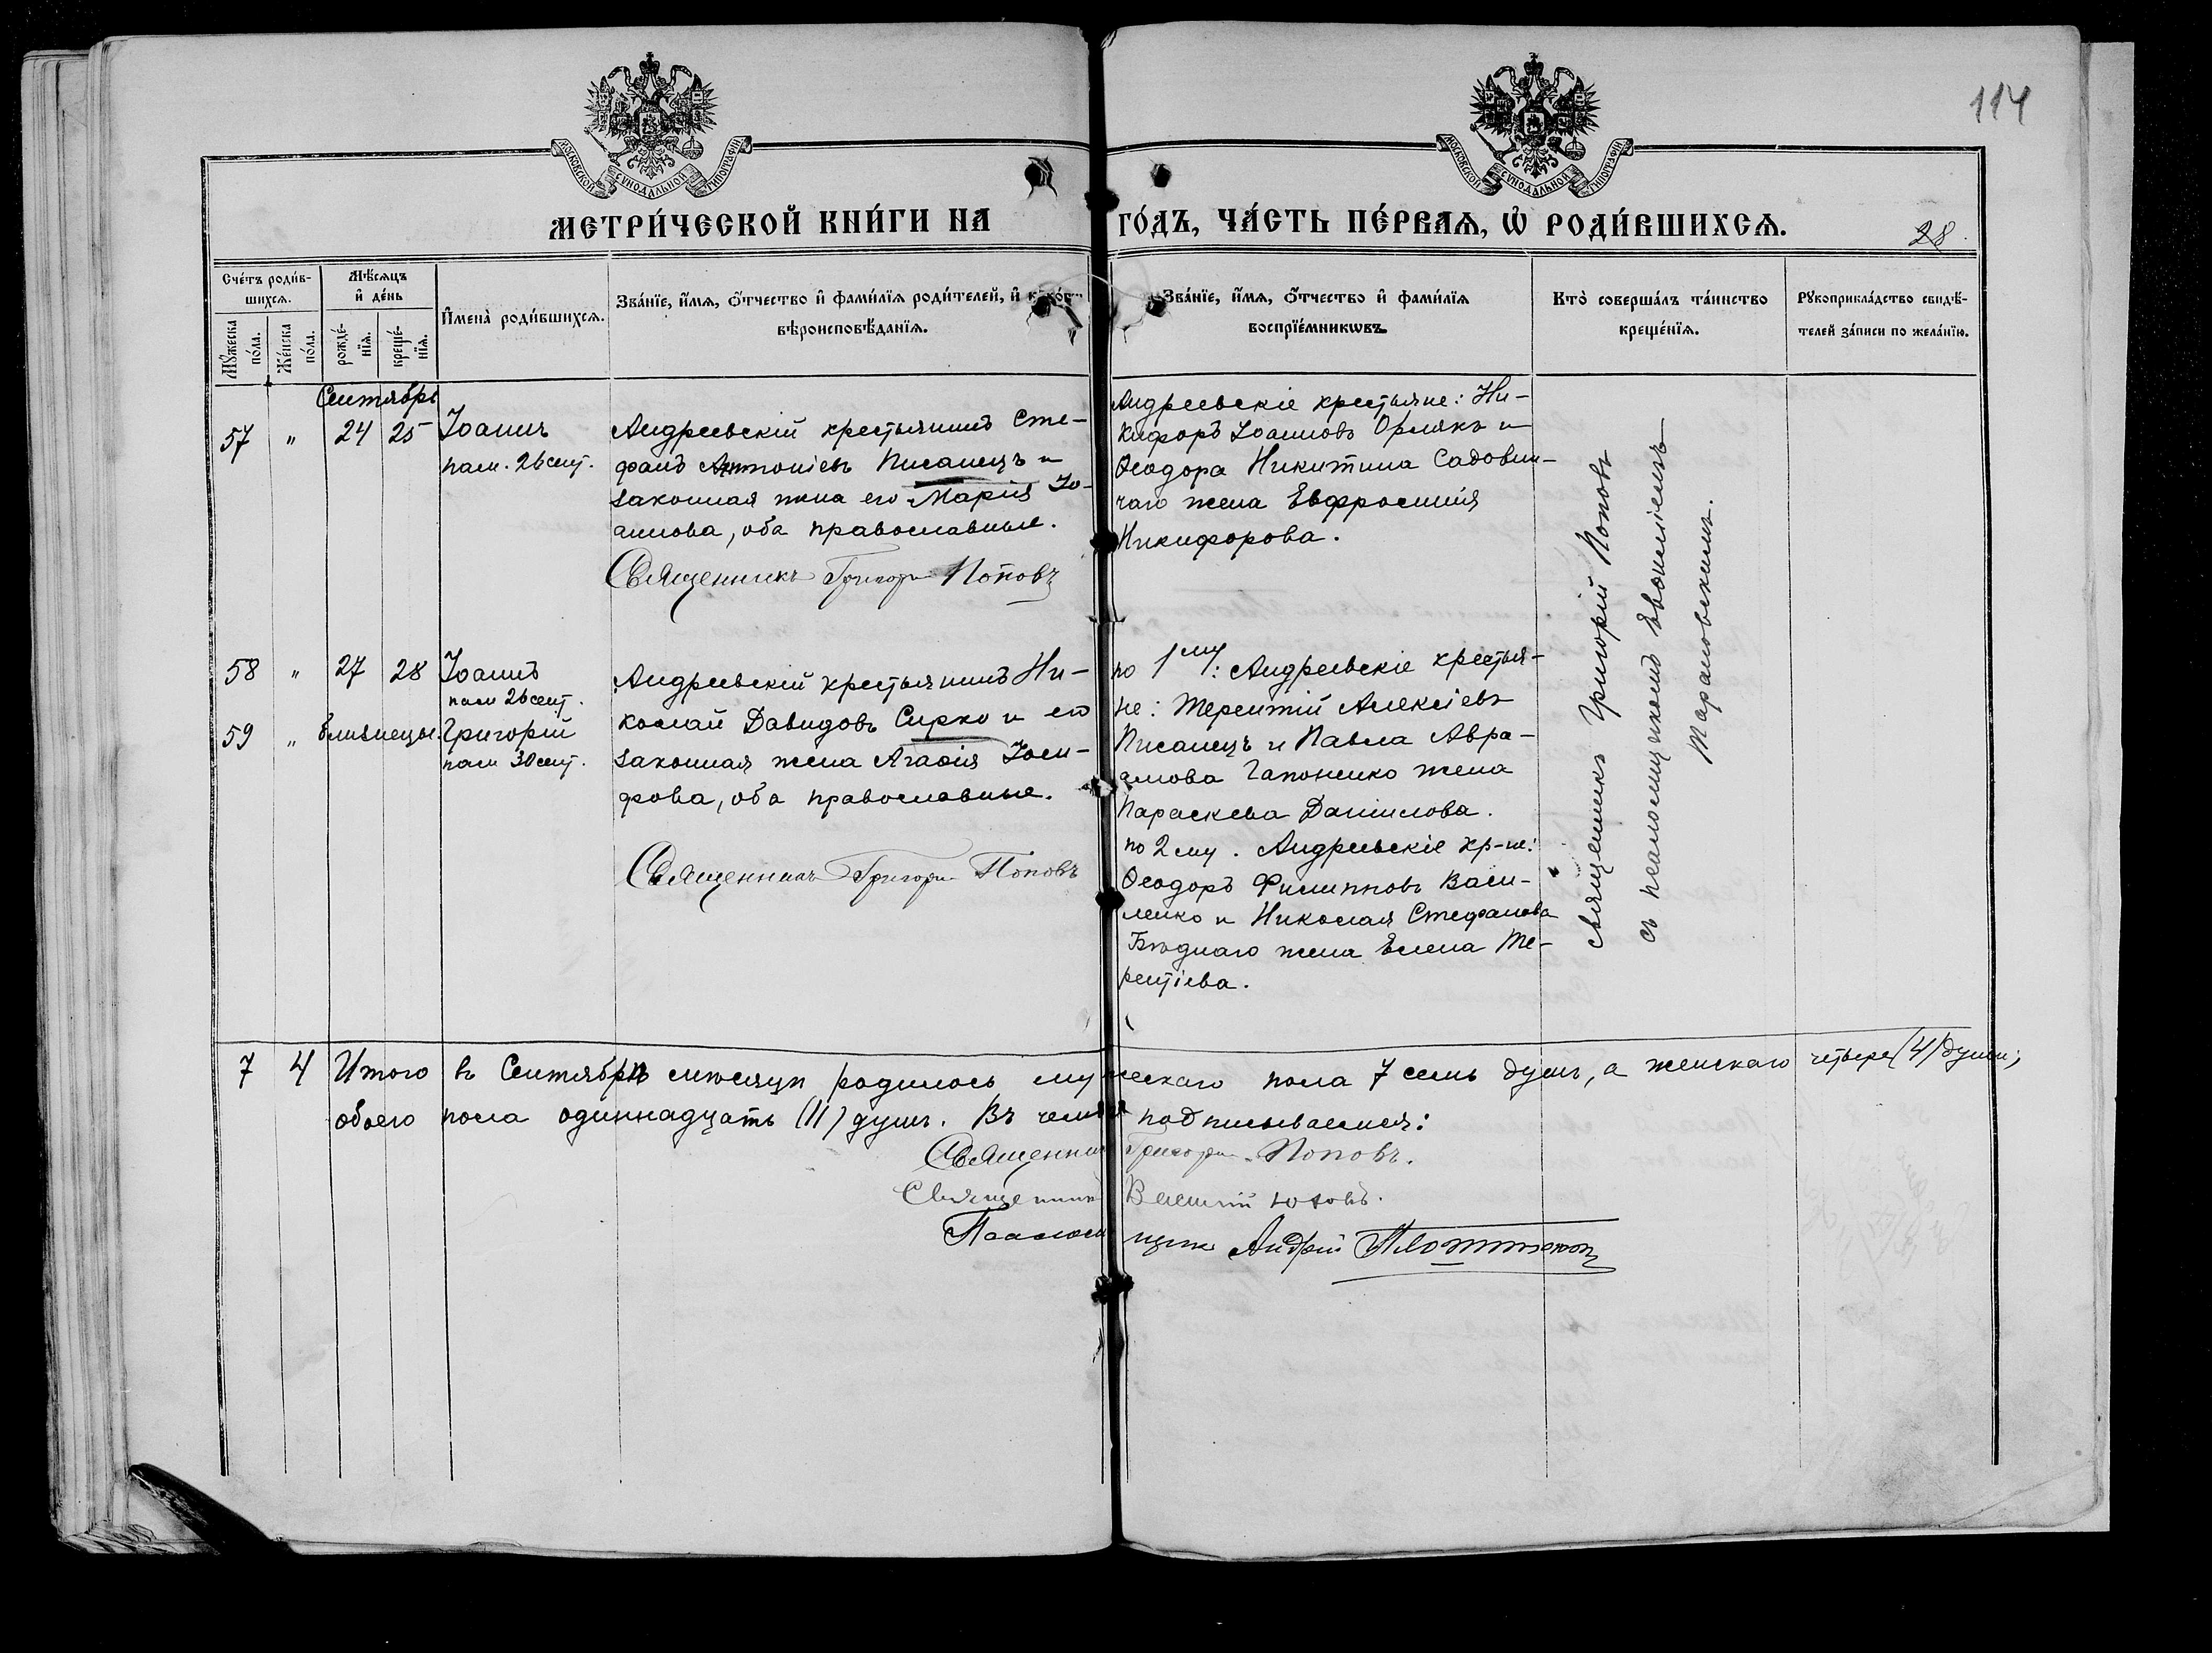 114
МОСКОВСКОЙ СѴНОДАЛЬНОЙ ТИПОГРАФІИ
МОСКОВСКОЙ СѴНОДАЛЬНОЙ ТИПОГРАФІИ
МЕТРИ́ЧЕСКОЙ КНИ́ГИ НА ГО́ДЪ, ЧА́СТЬ ПЕ́РВАѦ, Ѡ҆ РОДИ́ВШИХСѦ.
28
Сче́тъ роди́в-
шихсѧ.
Мꙋ́жеска по́ла.
Же́нска по́ла.
Мѣ́сѧцъ
и҆ де́нь
рожде́-
нїѧ.
креще́-
нїѧ.
И҆мена̀ роди́вшихсѧ.
Зва́нїе, и҆́мѧ, ѻ҆́тчество и҆ фами́лїѧ роди́телей, и҆
вѣроисповѣ́данїѧ.
Зва́нїе, и҆́мѧ, ѻ҆́тчество и҆ фами́лїѧ
воспрїе́мникѡвъ.
Кто̀ соверша́лъ та́инство
креще́нїѧ.
Рꙋкоприкла́дство свидѣ́-
телей за́писи по жела́нїю.
Сентябрь
57 " 24 25 Іоаннъ
пам. 26 сент.
Андреевскій крестьянинъ Сте-
фанъ Антоніевъ Писанецъ и
законная жена его Марія Іо-
аннова, оба православные.
Священникъ Григорій Поповъ
Андреевскіе крестьяне: Ни-
кифоръ Іоанновъ Орлякъ и
Ѳеодора Никитина Садовни-
чаго жена Евфросинія
Никифорова.
58 " 27 28 Іоаннъ
пам 26 сент.
59 " близнецы. Григорій
пам 30 сент.
Андреевскій крестьянинъ Ни-
колай Давидовъ Сирко и его
законная жена Агаѳія Іоси-
фова, оба православные.
Священникъ Григорій Поповъ
по 1му: Андреевскіе крестья-
не: Терентій Алексіевъ
Писанецъ и Павла Авра-
амова Гапоненко жена
Параскева Даніилова.
по 2му. Андреевскіе кр-не:
Ѳеодоръ Филипповъ Васи-
ленко и Николая Стефанова
Бѣднаго жена Елена Те-
рентіева.
священникъ Григорій Поповъ
съ псаломщикомъ Евѳиміемъ
Тарановскимъ.
7 4 Итого въ Сентябрѣ мѣсяцѣ родилось мужескаго пола 7 семь душъ, а женскаго четыре (4) души;
обоего пола одиннадцать (11) душъ. Въ чемъ и подписываемся:
Священникъ Григорій Поповъ.
Священникъ
Псаломщикъ Андрей